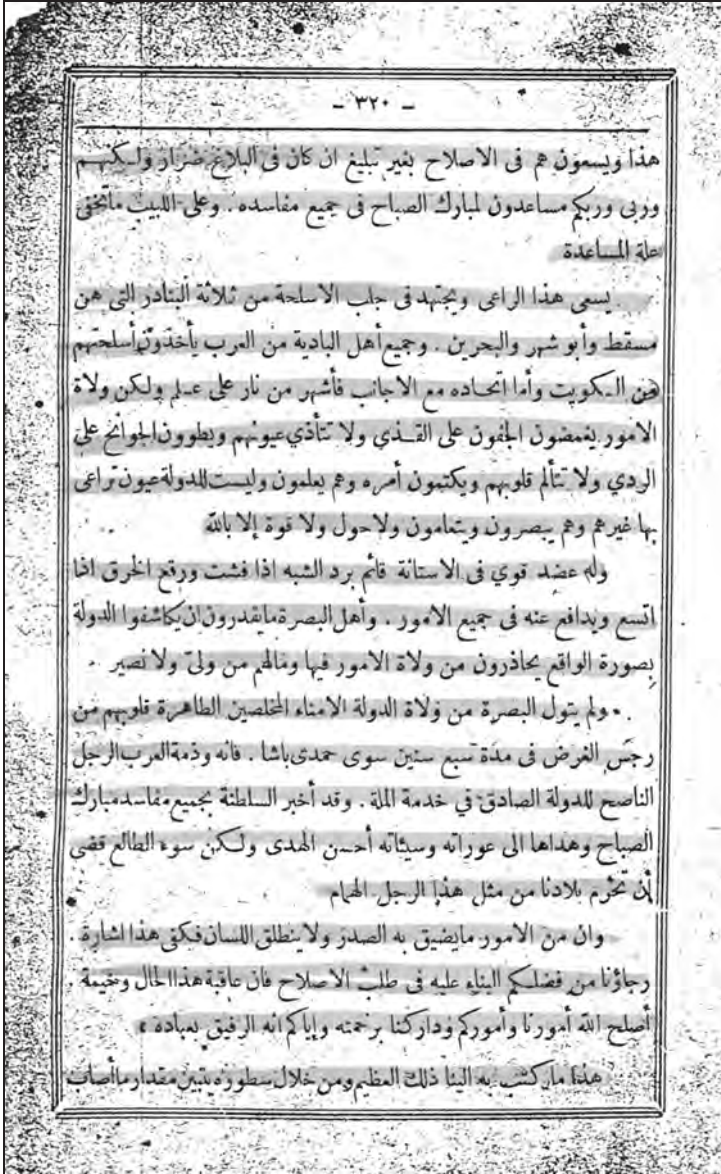 - ٣٢٠ -
هذا ويسعون هم فى الاصلاح بغير تبليغ ان كان فى البلاغ ضرار ولكنهم
وربى وربكم مساعدون لمبارك الصباح فى جميع مفاسده . وعلى اللبيب ماتخفى
علة المساعدة
يسعى هذا الراعى ويجتهد فى جلب الاسلحة من ثلاثة البنادر التى هن
مسقط وأبو شهر والبحرين . وجميع أهل البادية من العرب يأخذون أسلحتهم
من الكويت وأما اتحاده مع الاجانب فأشهر من نار على علم ولكن ولاة
الامور يغمضون الجفون على القذي ولا تتأذي عيونهم ويطوون الجوانح على
الردي ولا تتألم قلوبهم ويكتمون أمره وهم يعلمون وليست للدولة عيون تراعى
بها غيرهم وهم يبصرون ويتعامون ولاحول ولا قوة إلا بالله
وله عضد قوي فى الاستانة قائم برد الشبه اذا فشت ورقع الخرق اذا
اتسع ويدافع عنه فى جميع الامور . وأهل البصرة مايقدرون ان يكاشفوا الدولة
بصورة الواقع يحاذرون من ولاة الامور فيها ومالهم من ولىّ ولا نصير
ولم يتول البصرة من ولاة الدولة الامناء المخلصين الطاهرة قلوبهم من
رجس الغرض فى مدة سبع سنين سوى حمدى باشا . فانه وذمة العرب الرجل
الناصح للدولة الصادق في خدمة الملة . وقد أخبر السلطنة بجميع مفاسد مبارك
الصباح وهداها الى عوراته وسيئاته أحسن الهدى ولكن سوء الطالع قضى
أن تحرم بلادنا من مثل هذا الرجل الهمام
وان من الامور مايضيق به الصدر ولا ينطلق اللسان فكفى هذا اشارة .
رجاؤنا من فضلكم البناء عليه فى طلب الاصلاح فان عاقبة هذا الحال وخيمة .
أصلح الله أمورنا وأموركم وداركنا برحمته وإياكم انه الرفيق بعباده »
هذا ماكتب به الينا ذلك العظيم ومن خلال سطوره يتبين مقدار ماأصاب